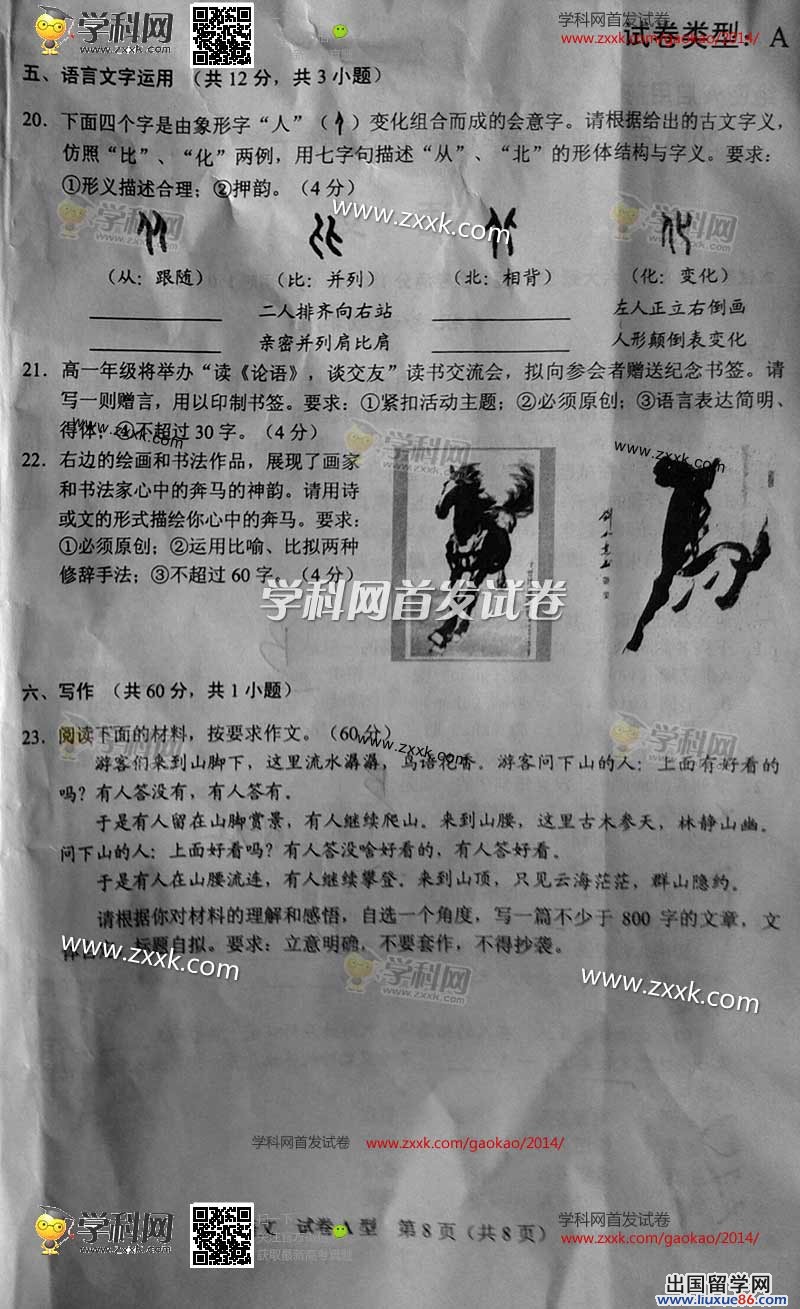 学科网
www.zxxk.com
学科网首发试卷 www.zxxk.com/gaokao/2014/
试卷类型：A
五、语言文字运用（共12分，共3小题）
20．下面四个字是由象形字“人”（ ）变化组合而成的会意字。请根据给出的古文字义，
仿照“比”、“化”两例，用七字句描述“从”、“北”的形体结构与字义。要求：
①形义描述合理；②押韵。（4分）
学科网
www.zxxk.com
（从：跟随） （比：并列） （北：相背） （化：变化）
二人排齐向右站 左人正立右倒画
亲密并列肩比肩 人形颠倒表变化
21．高一年级将举办“读《论语》，谈交友”读书交流会，拟向参会者赠送纪念书签。请
写一则赠言，用以印制书签。要求：①紧扣活动主题；②必须原创；③语言表达简明、
得体；④不超过30字。（4分）
www.zxxk.com
www.zxxk.com
22．右边的绘画和书法作品，展现了画家
和书法家心中的奔马的神韵。请用诗
或文的形式描绘你心中的奔马。要求：
①必须原创；②运用比喻、比拟两种
修辞手法；③不超过60字。（4分）
学科网首发试卷
六、写作（共60分，共1小题）
23．阅读下面的材料，按要求作文。（60分）
www.zxxk.com
学科网
游客们来到山脚下，这里流水潺潺，鸟语花香。游客问下山的人：上面有好看的
吗？有人答没有，有人答有。
于是有人留在山脚赏景，有人继续爬山。来到山腰，这里古木参天，林静山幽。
问下山的人：上面好看吗？有人答没啥好看的，有人答好看。
于是有人在山腰流连，有人继续攀登。来到山顶，只见云海茫茫，群山隐约。
请根据你对材料的理解和感悟，自选一个角度，写一篇不少于 800 字的文章，文
标题自拟。要求：立意明确，不要套作，不得抄袭。
www.zxxk.com
学科网
www.zxxk.com
学科网首发试卷 www.zxxk.com/gaokao/2014/
学科网
www.zxxk.com
文 试卷A型 第8页（共8页）
学科网首发试卷 www.zxxk.com/gaokao/2014/
获取最新高考真题
出国留学网
www.liuxue86.com